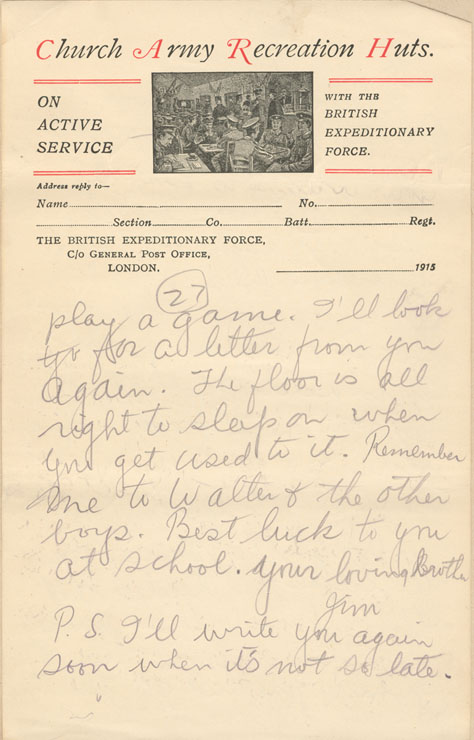 Church Army Recreation Huts.
ON
ACTIVE
SERVICE
WITH THE
BRITISH
EXPEDITIONARY
FORCE.
Address reply to—
Name No.
Section Co. Batt. Regt.
THE BRITISH EXPEDITIONARY FORCE,
C/o GENERAL POST OFFICE,
LONDON.
1915
27
play a game. I'll look
for a letter from you
again. The floor is all
right to sleep on when
you get used to it. Remember
me to Walter & the other
boys. Best luck to you
at school. Your loving Brother
Jim
P.S. I'll write you again
soon when it's not so late.